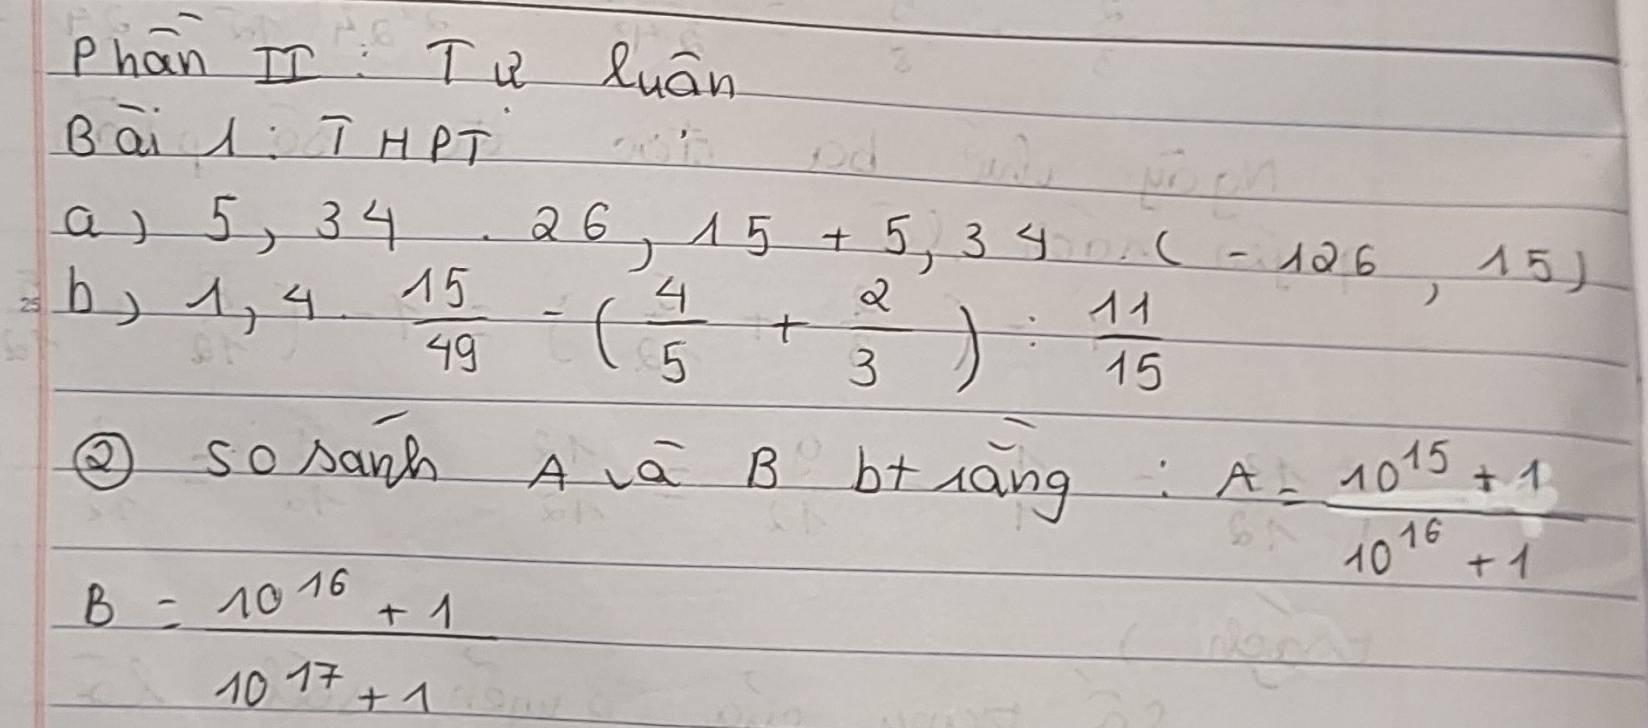 Phần II : Tự luận
Bài 1 : THPT
a) 5,34 . 26,15 + 5,34 . (-126,15)
b) 1,4 . 15/49 - (4/5 + 2/3) : 11/15
② so sánh A và B bt rằng : A = 10^15 + 1 / 10^16 + 1
B = 10^16 + 1 / 10^17 + 1